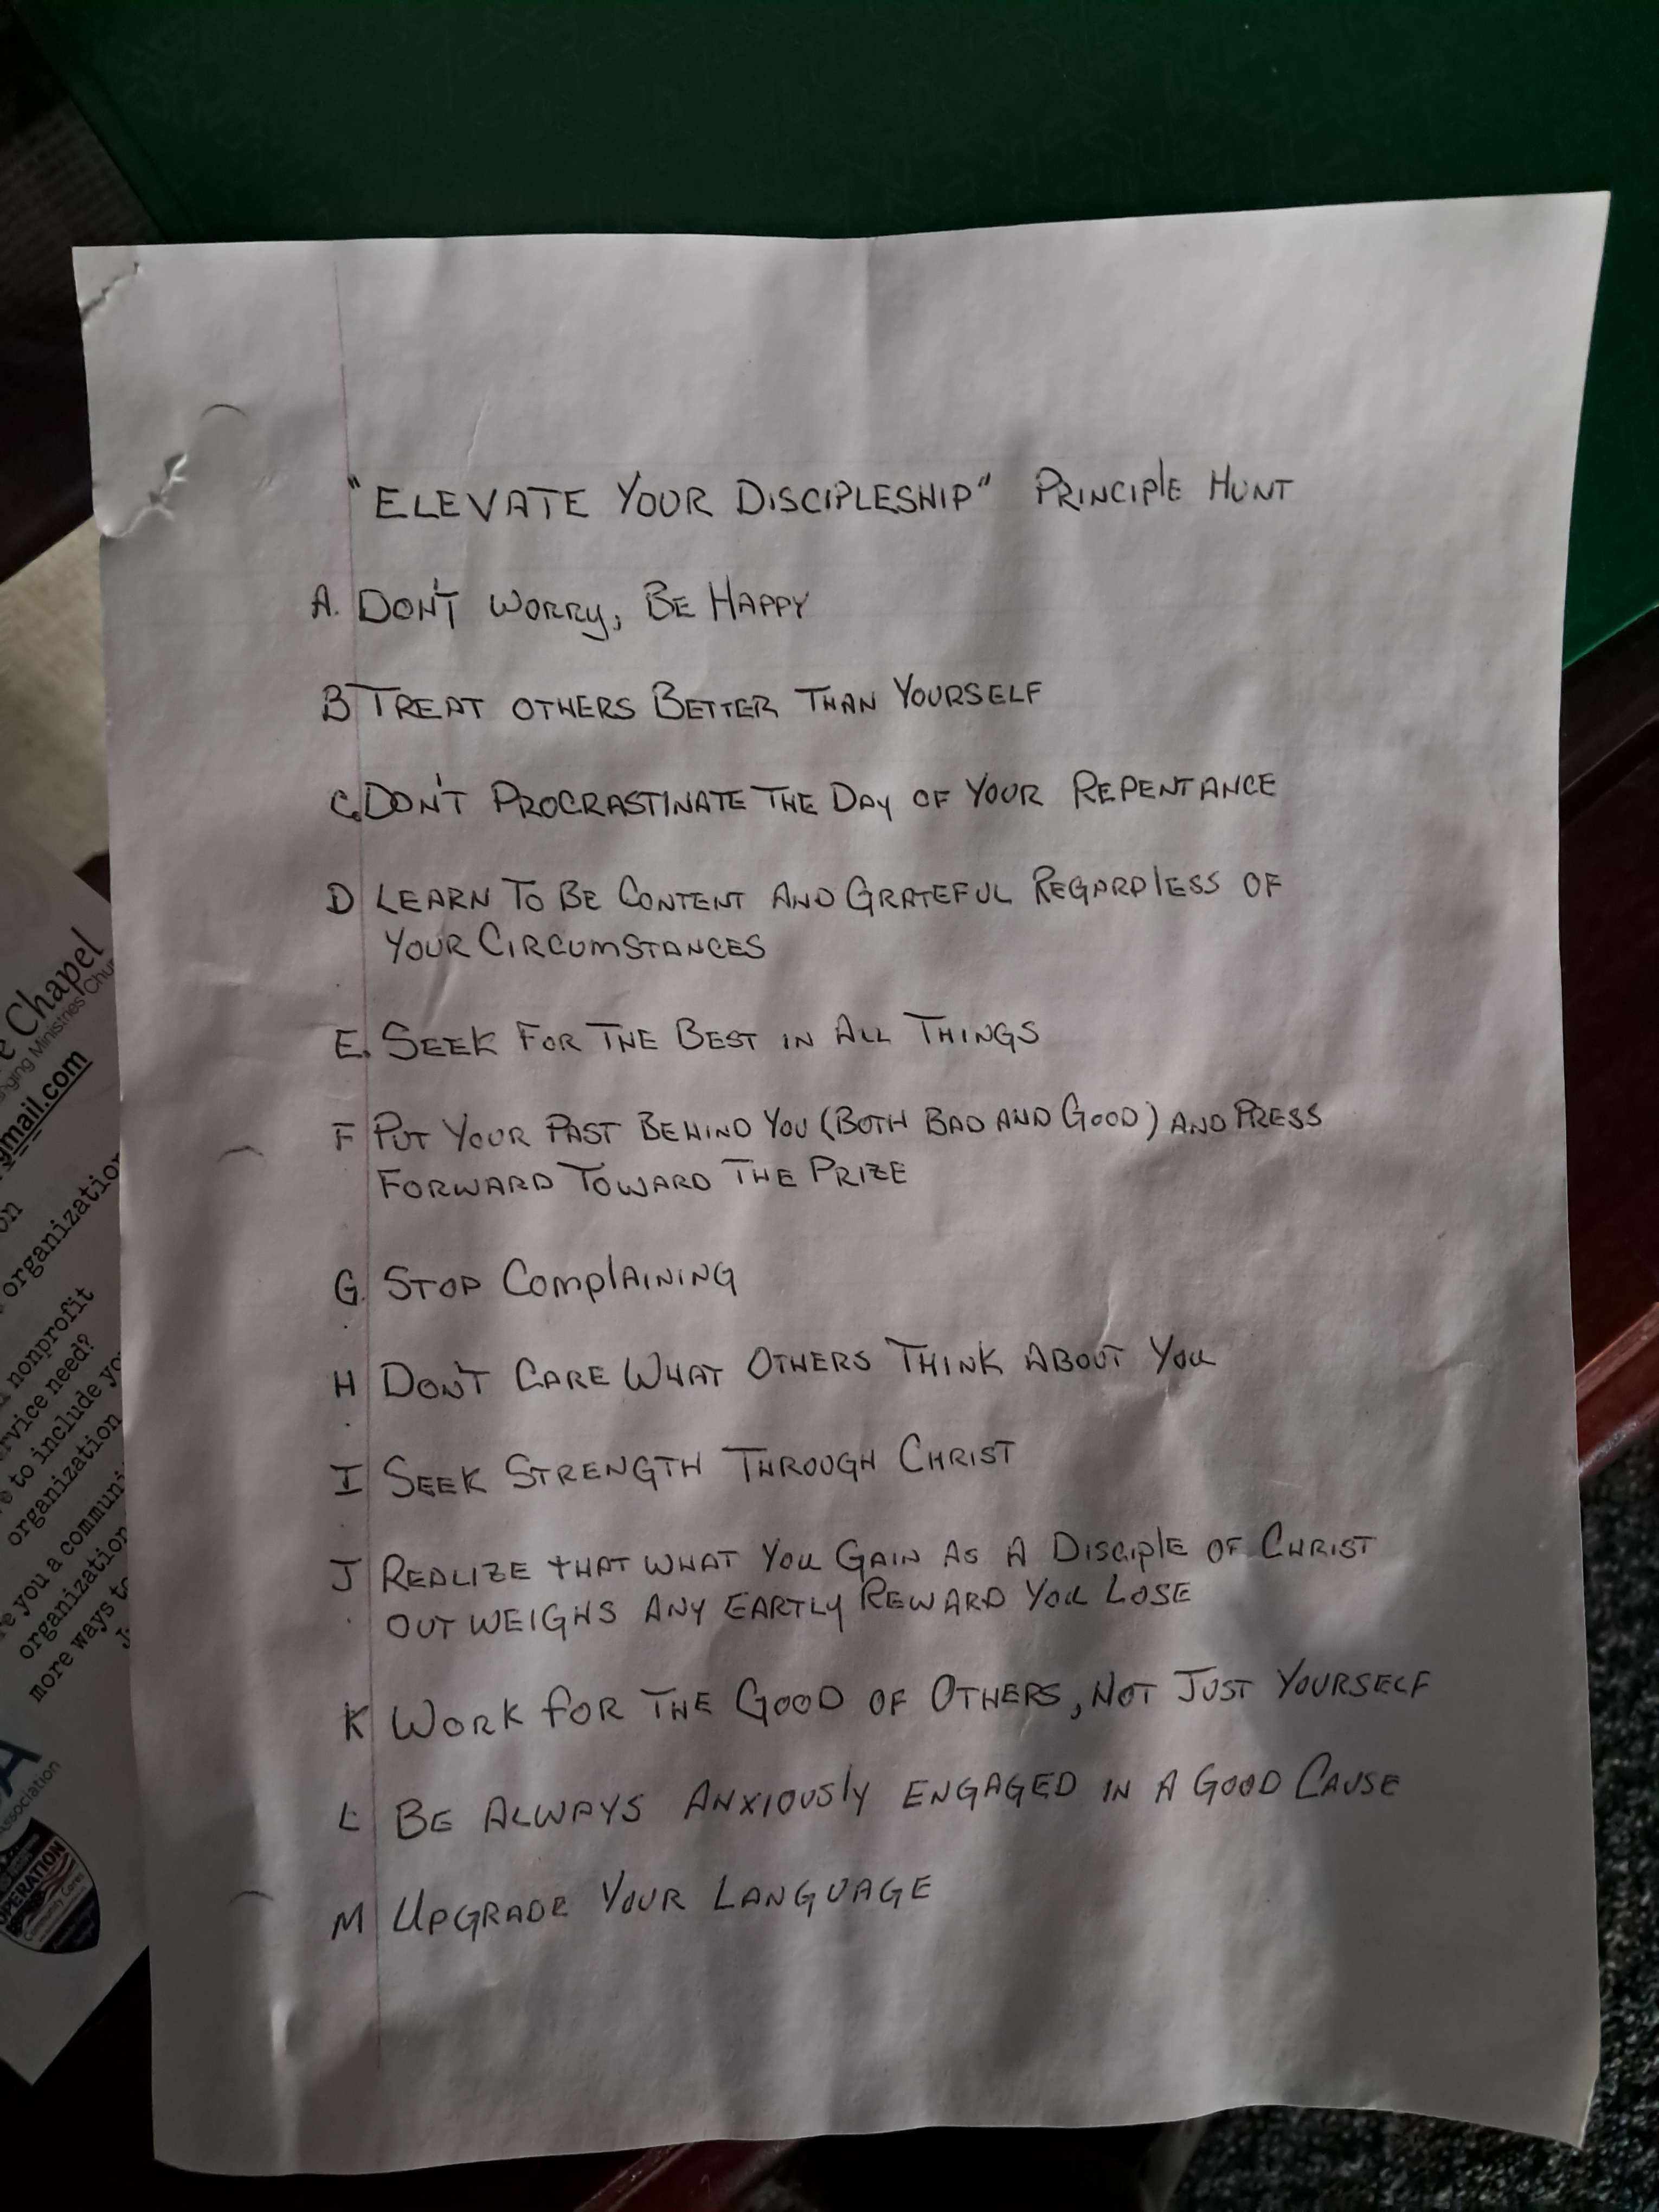 "ELEVATE YOUR DISCIPLESHIP" PRINCIPLE HUNT
A. DON'T WORRY, BE HAPPY
B TREAT OTHERS BETTER THAN YOURSELF
C. DON'T PROCRASTINATE THE DAY OF YOUR REPENTANCE
D LEARN TO BE CONTENT AND GRATEFUL REGARDLESS OF
YOUR CIRCUMSTANCES
E. SEEK FOR THE BEST IN ALL THINGS
F PUT YOUR PAST BEHIND YOU (BOTH BAD AND GOOD) AND PRESS
FORWARD TOWARD THE PRIZE
G. STOP COMPLAINING
H DON'T CARE WHAT OTHERS THINK ABOUT YOU
I SEEK STRENGTH THROUGH CHRIST
J REALIZE THAT WHAT YOU GAIN AS A DISCIPLE OF CHRIST
OUTWEIGHS ANY EARTLY REWARD YOU LOSE
K WORK FOR THE GOOD OF OTHERS, NOT JUST YOURSELF
L BE ALWAYS ANXIOUSLY ENGAGED IN A GOOD CAUSE
M UPGRADE YOUR LANGUAGE
Chapel
Ministries
gmail.com
organization
nonprofit
need?
to include
organization
you a
organization
more ways to
Association
OPERATION